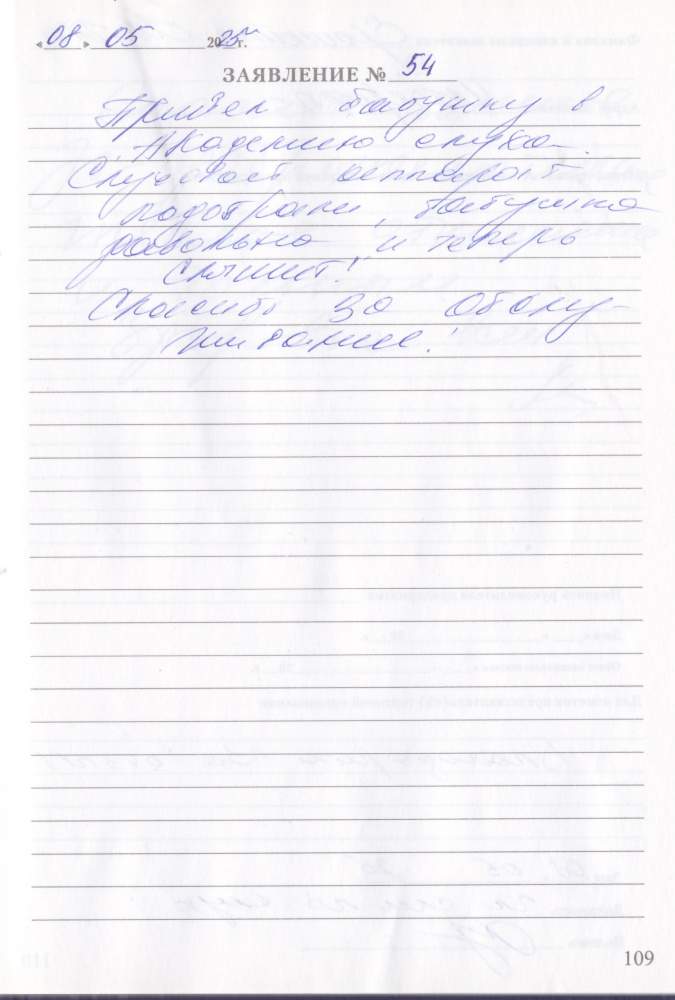 « 08 » 05 2025 г.
ЗАЯВЛЕНИЕ № 54
Привел бабушку в
Академию слуха.
Слуховой аппарат
подобрали, бабушка
довольна и теперь
слышит!
Спасибо за обслу-
живание!
109